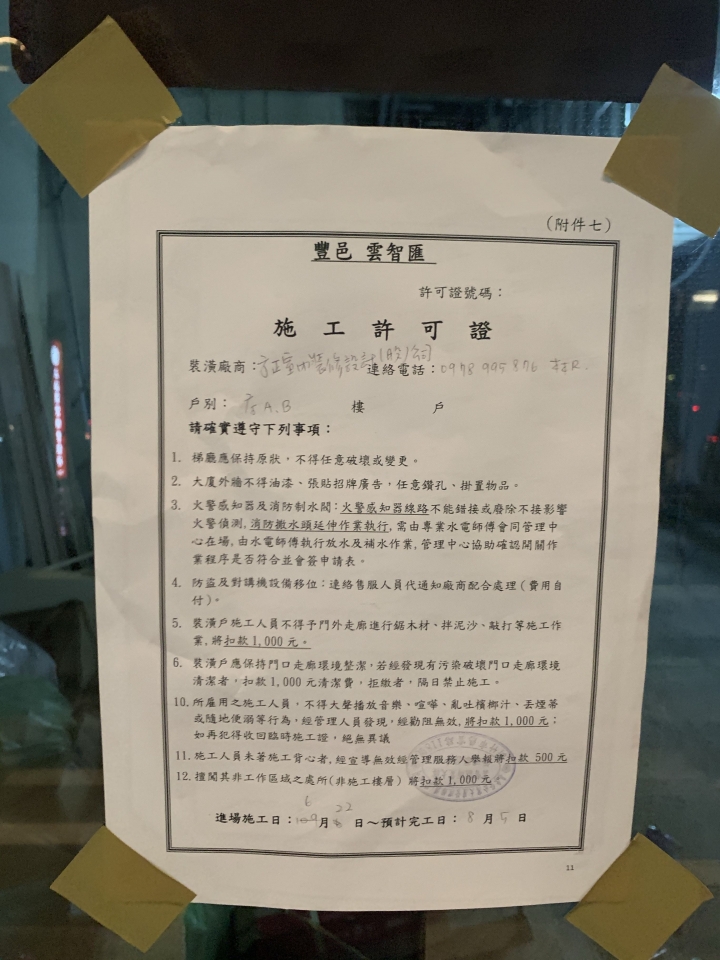 (附件七)
豐邑 雲智匯
許可證號碼：
施 工 許 可 證
裝潢廠商： 裝修設計(股)公司 連絡電話：0978 995 876 林R.
戶別： 店A.B 樓 戶
請確實遵守下列事項：
1. 梯廳應保持原狀，不得任意破壞或變更。
2. 大廈外牆不得油漆、張貼招牌廣告，任意鑽孔、掛置物品。
3. 火警感知器及消防制水閥：火警感知器線路不能錯接或廢除不接影響
火警偵測，消防撒水頭延伸作業執行，需由專業水電師傅會同管理中
心在場，由水電師傅執行放水及補水作業，管理中心協助確認開關作
業程序是否符合並會簽申請表。
4. 防盜及對講機設備移位：連絡售服人員代通知廠商配合處理（費用自
付）。
5. 裝潢戶施工人員不得予門外走廊進行鋸木材、拌泥沙、敲打等施工作
業，將扣款 1,000 元。
6. 裝潢戶應保持門口走廊環境整潔，若經發現有污染破壞門口走廊環境
清潔者，扣款 1,000 元清潔費，拒繳者，隔日禁止施工。
10. 所雇用之施工人員，不得大聲播放音樂、喧嘩、亂吐檳榔汁、丟煙蒂
或隨地便溺等行為，經管理人員發現，經勸阻無效，將扣款 1,000 元；
如再犯得收回臨時施工證，絕無異議
11. 施工人員未著施工背心者，經宣導無效經管理服務人學報將扣款 500 元
12. 擅闖其非工作區域之處所(非施工樓層) 將扣款 1,000 元
進場施工日： 6 月 22 日～預計完工日： 8 月 5 日
11